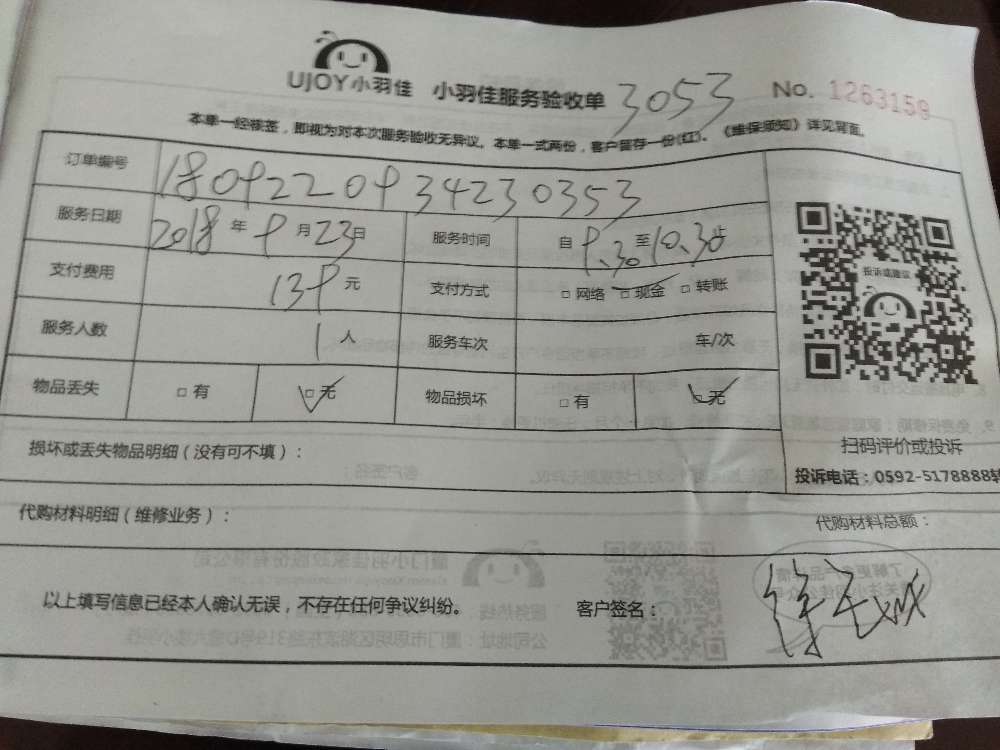 UJOY小羽佳 小羽佳服务验收单 3053 No. 1263159
本单一经核签，即视为对本次服务验收无异议。本单一式两份，客户留存一份(红)。《维保须知》详见背面。
订单编号 1809220934230353
服务日期 2018年9月23日 服务时间 自9.30至10.30止
支付费用 139元 支付方式 □网络 □现金 □转账
服务人数 1人 服务车次 车/次
物品丢失 □有 □无 物品损坏 □有 □无
投诉或建议
扫码评价或投诉
投诉电话：0592-5178888转
损坏或丢失物品明细（没有可不填）：
代购材料明细（维修业务）： 代购材料总额：
以上填写信息已经本人确认无误，不存在任何争议纠纷。 客户签名：